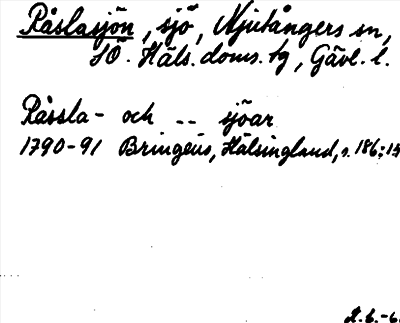 Råslasjön, sjö, Njutångers sn,
SÖ. Häls. doms. tg, Gävl. l.
Råssla- och -- sjöar
1790-91 Bringéus, Hälsingland, s. 186:15